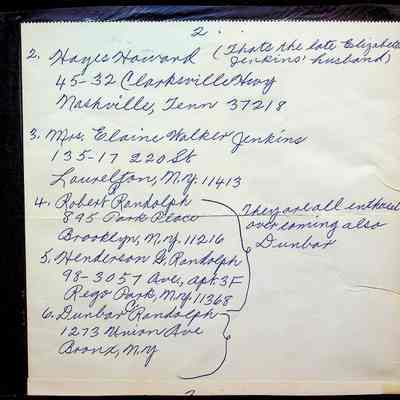 2.
2. Hayes Howard (Thats the late Elizabeth Jenkins' husband)
45-32 Clarksville Hwy
Nashville, Tenn 37218
3. Mrs. Elaine Walker Jenkins
135-17 220 St
Laurelton, N.Y. 11413
4. Robert Randolph
895 Park Place
Brooklyn, N.Y. 11216
5. Henderson G. Randolph
98-30 57 Ave, Apt. 3F
Rego Park, N.Y. 11368
6. Dunbar Randolph
1273 Union Ave
Bronx, N.Y
They are all enthused
over coming also
Dunbar